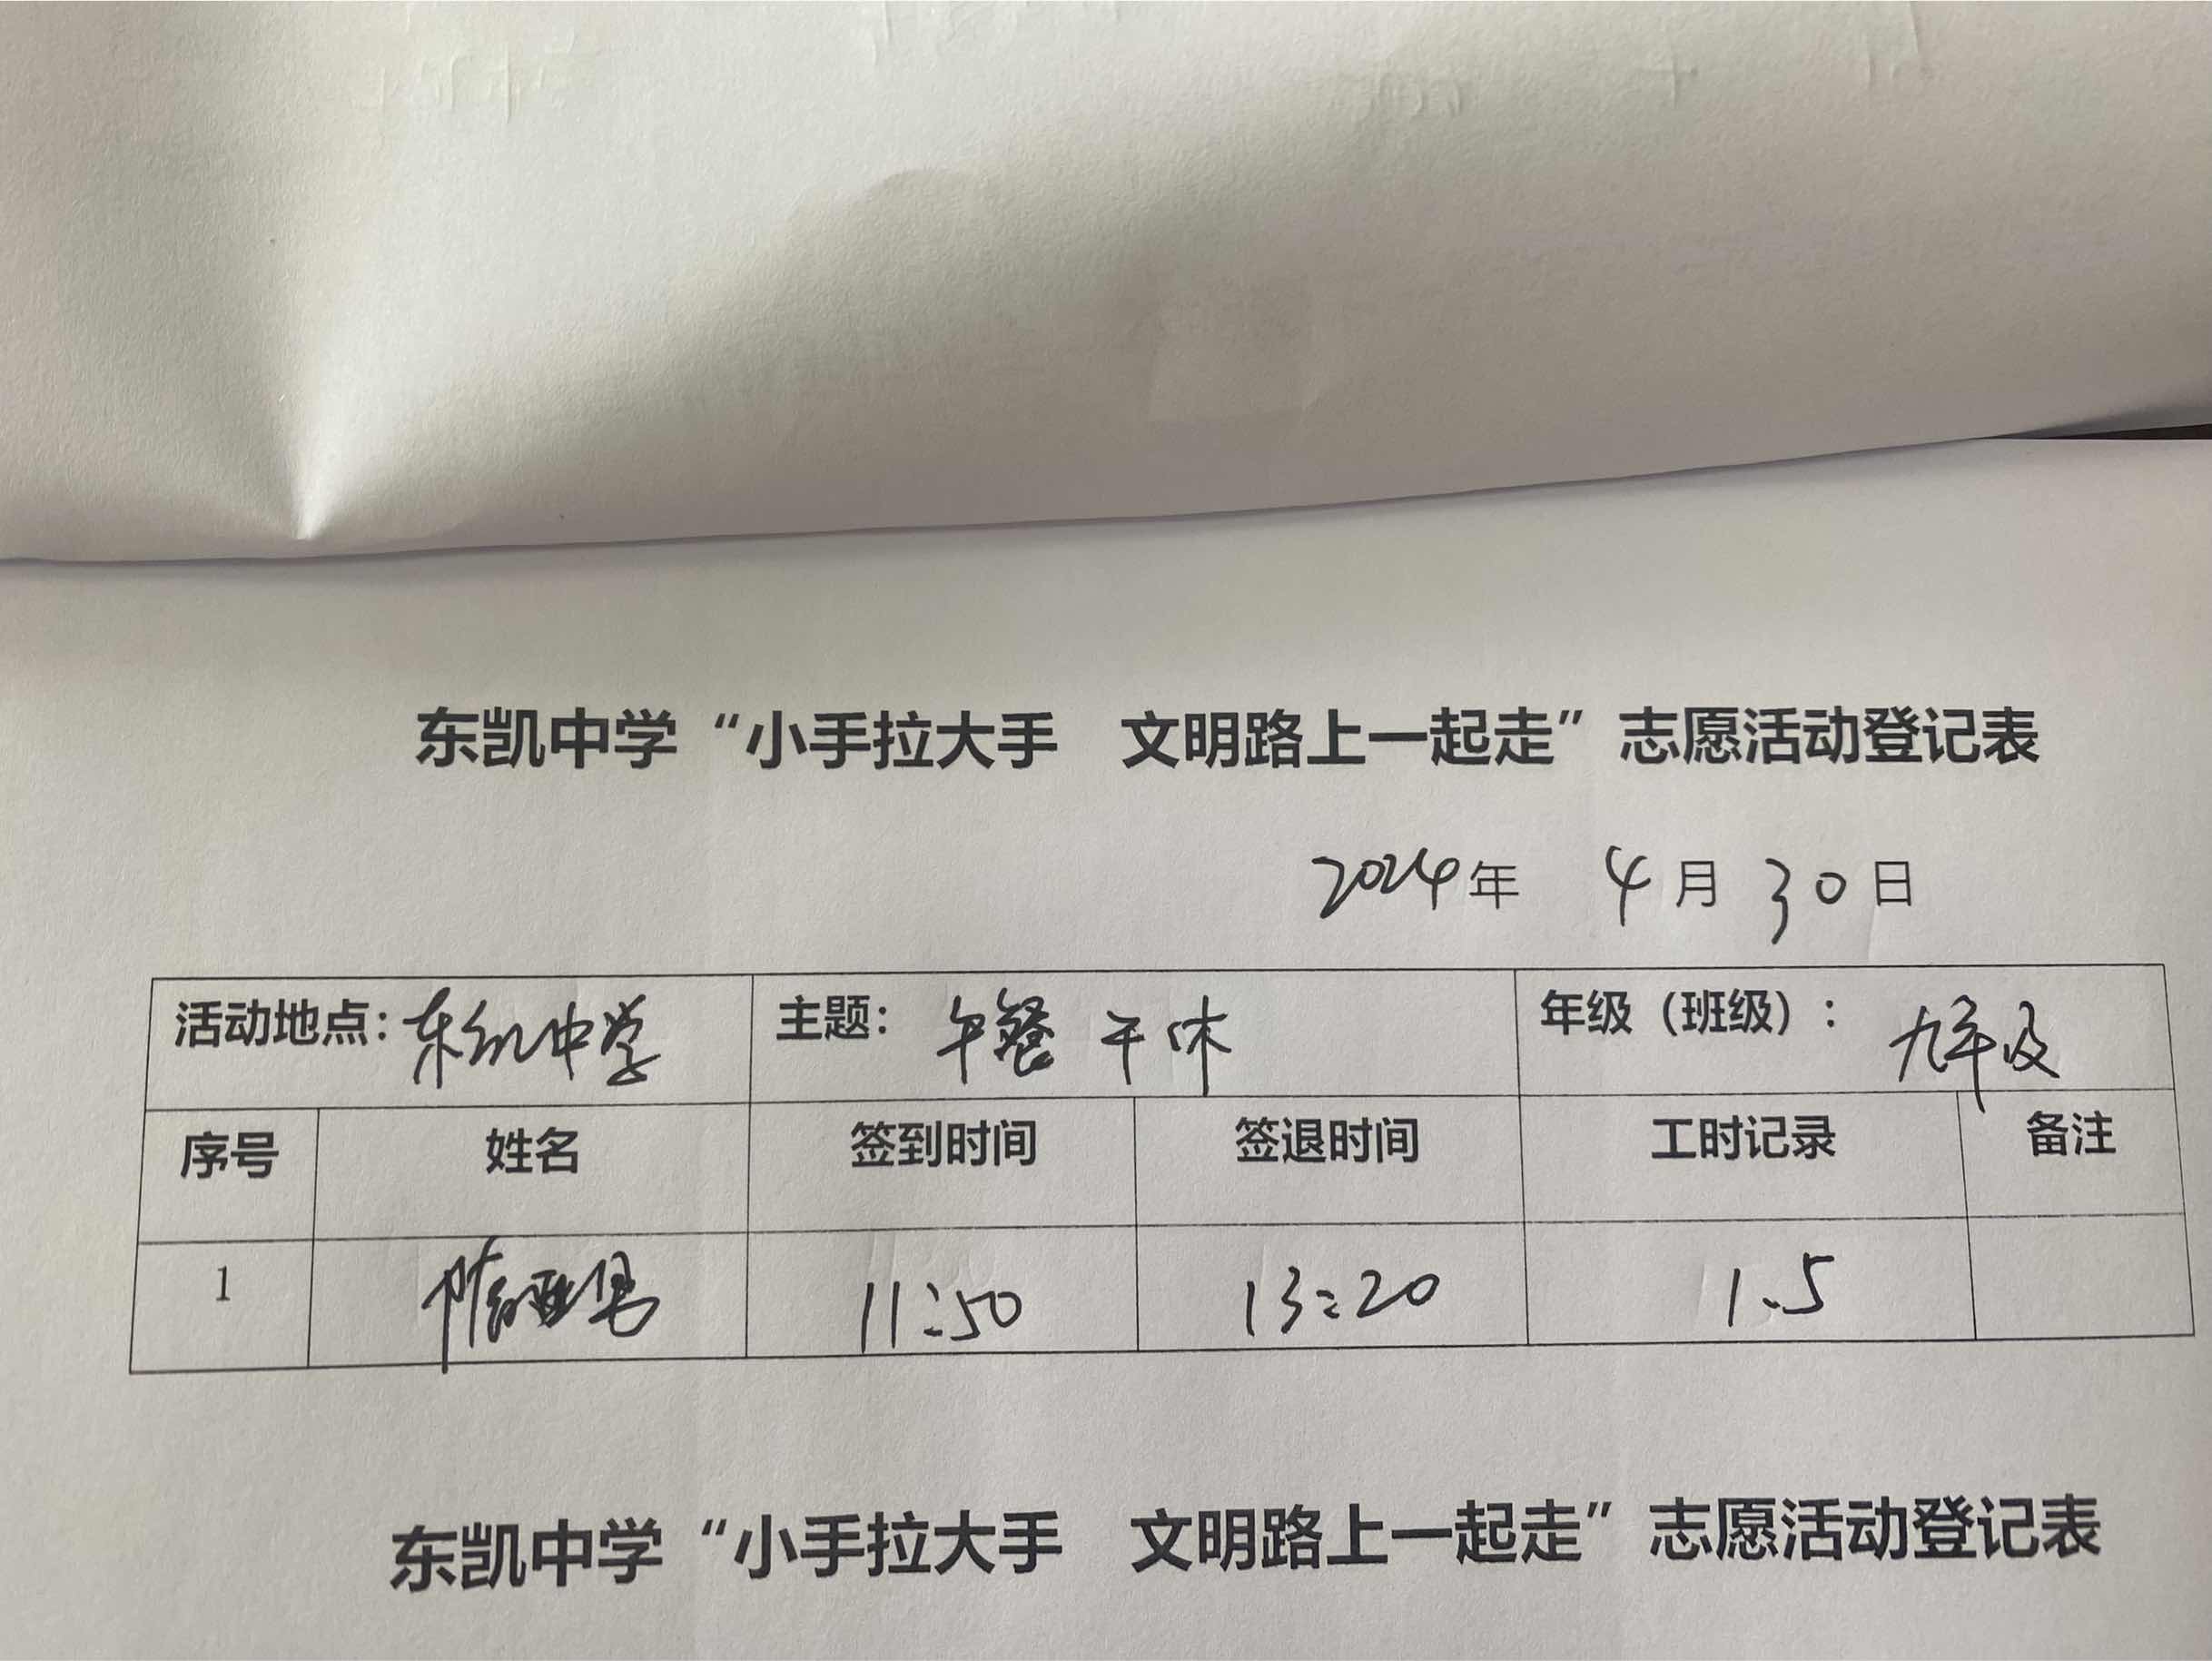 东凯中学“小手拉大手 文明路上一起走”志愿活动登记表
2024年 4月30日
活动地点:东凯中学 主题: 午餐 午休 年级（班级）: 九年级
序号 姓名 签到时间 签退时间 工时记录 备注
1 11:50 13:20 1.5
东凯中学“小手拉大手 文明路上一起走”志愿活动登记表